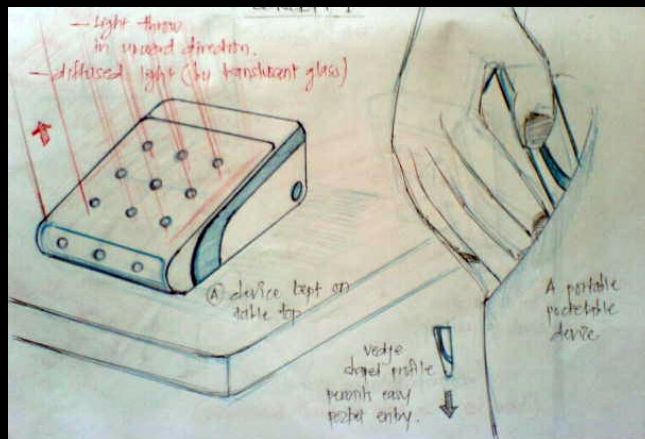 CONCEPT 1
— light throw
in upward direction.
— diffused light (by translucent glass)
Ⓐ device kept on
table top
A portable
pocketable
device
vedge
shaped profile
permits easy
pocket entry.